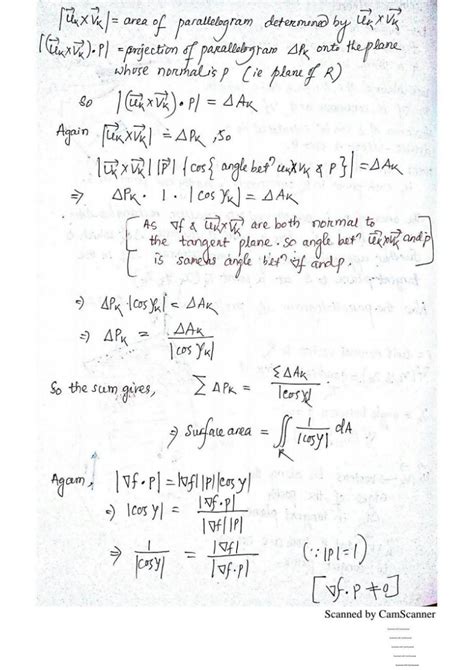 |u⃗ₖ×v⃗ₖ| = area of parallelogram determined by u⃗ₖ×v⃗ₖ
|(u⃗ₖ×v⃗ₖ)·p| = projection of parallelogram ΔPₖ onto the plane
whose normal is p (ie plane of R)
So |(u⃗ₖ×v⃗ₖ)·p| = ΔAₖ
Again |u⃗ₖ×v⃗ₖ| = ΔPₖ, so
|u⃗ₖ×v⃗ₖ| |p⃗| |cos{angle betⁿ uₖ×vₖ & p}| = ΔAₖ
⇒ ΔPₖ · 1 · |cos γₖ| = ΔAₖ
[As ∇f & u⃗ₖ×v⃗ₖ are both normal to
the tangent plane. so angle betⁿ u⃗ₖ×v⃗ₖ and p
is same as angle betⁿ ∇f and p.]
⇒ ΔPₖ |cos γₖ| = ΔAₖ
⇒ ΔPₖ = ΔAₖ / |cos γₖ|
So the sum gives, Σ ΔPₖ = ΣΔAₖ / |cos γ|
⇒ Surface area = ∬_R 1/|cos γ| dA
Again, |∇f·p| = |∇f||p||cos γ|
⇒ |cos γ| = |∇f·p| / |∇f||p|
⇒ 1/|cos γ| = |∇f| / |∇f·p| (∵ |p|=1)
[∇f·p ≠ 0]
Scanned by CamScanner